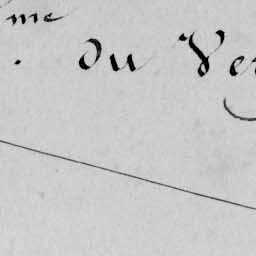 me
. du Ver